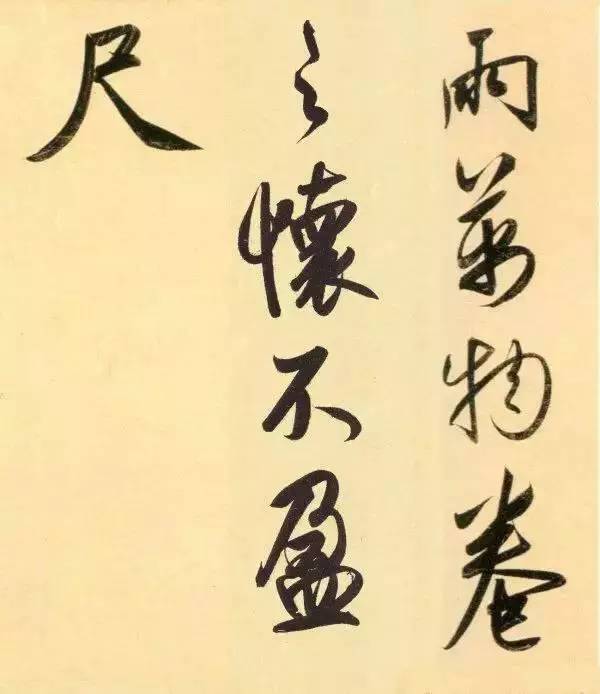 雨萬物卷
之懷不盈
尺